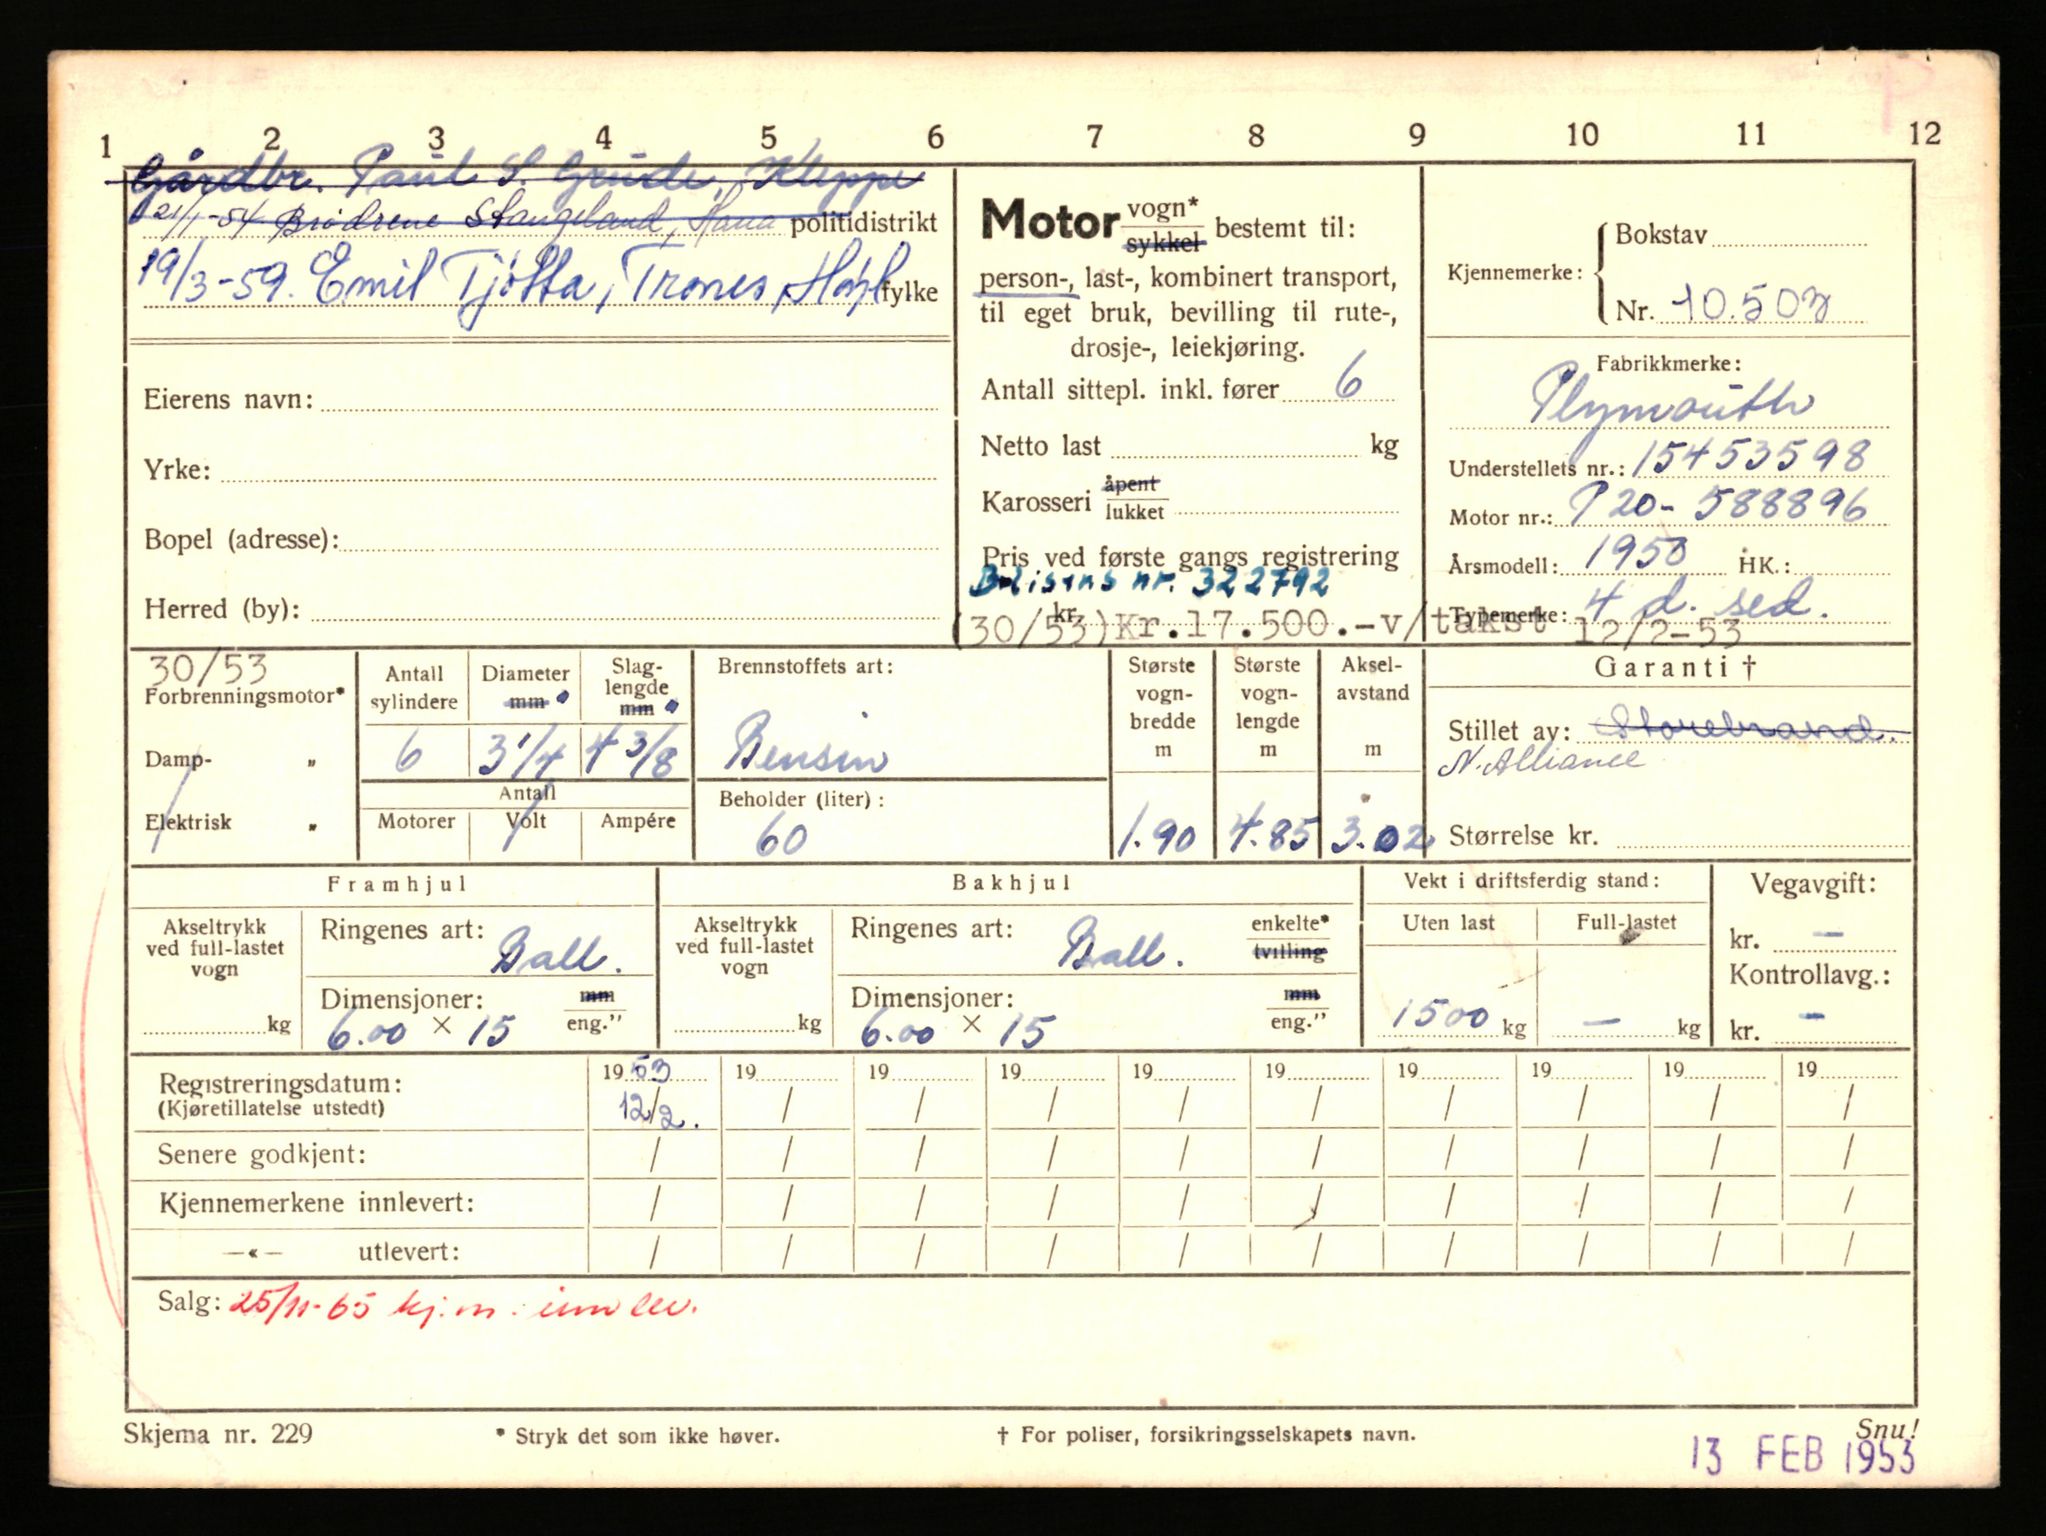 1 2 3 4 5 6 7 8 9 10 11 12
Gårdbr. Paul S. Grude, Kleppe
21/1-54 Brødrene Stangeland, Hana politidistrikt
19/3-59. Emil Tjøtta, Trones, Høyl fylke
Eierens navn:
Yrke:
Bopel (adresse):
Herred (by):
Motor vogn* sykkel bestemt til:
person-, last-, kombinert transport,
til eget bruk, bevilling til rute-,
drosje-, leiekjøring.
Antall sittepl. inkl. fører 6
Netto last kg
Karosseri åpent lukket
Pris ved første gangs registrering
nr. 322792
kr.
(30/53) Kr.17.500.-v/takst 12/2-53
Kjennemerke: Bokstav
Nr. 10.503
Fabrikkmerke:
Plymouth
Understellets nr.: 15453598
Motor nr.: P20-588896
Årsmodell: 1950 HK.:
Typemerke: 4 d. sed.
30/53
Forbrenningsmotor*
Damp- „
Elektrisk „
Antall sylindere 6
Diameter mm " 3 1/4
Slaglengde mm " 4 3/8
Antall
Motorer Volt Ampére
Brennstoffets art:
Bensin
Beholder (liter):
60
Største vognbredde m 1.90
Største vognlengde m 4.85
Akselavstand m 3.02
Garanti †
Stillet av: Storebrand.
N. Alliance
Størrelse kr.
Framhjul
Akseltrykk ved full-lastet vogn kg
Ringenes art: Ball.
Dimensjoner: mm eng."
6.00 × 15
Bakhjul
Akseltrykk ved full-lastet vogn kg
Ringenes art: Ball. enkelte* tvilling
Dimensjoner: mm eng."
6.00 × 15
Vekt i driftsferdig stand:
Uten last Full-lastet
1500 kg — kg
Vegavgift:
kr. —
Kontrollavg.:
kr. —
Registreringsdatum: 19 53 19 19 19 19 19 19 19 19 19
(Kjøretillatelse utstedt) 12/2. / / / / / / / / /
Senere godkjent: / / / / / / / / / /
Kjennemerkene innlevert: / / / / / / / / / /
—«— utlevert: / / / / / / / / / /
Salg: 25/11-65 kj.m. innlev.
Skjema nr. 229 * Stryk det som ikke høver. † For poliser, forsikringsselskapets navn. Snu!
13 FEB 1953